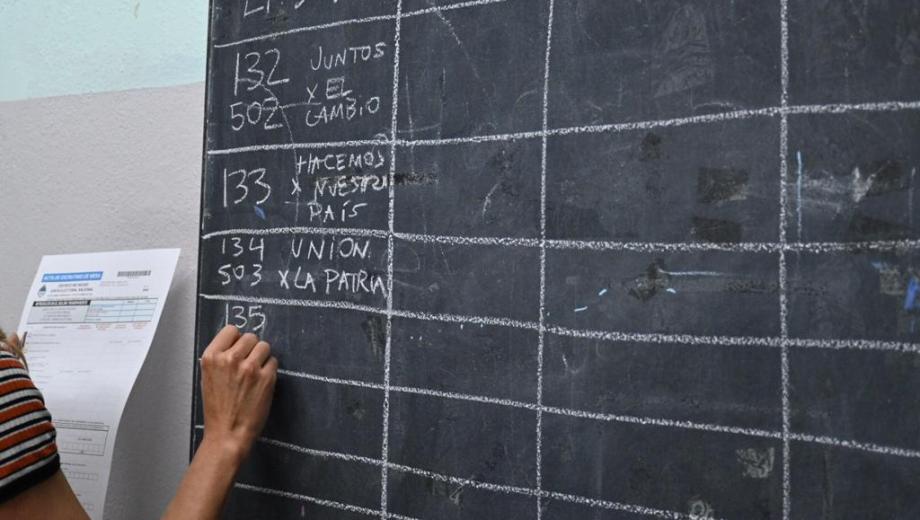 132 JUNTOS
502 X EL
CAMBIO
133 HACEMOS
X NUESTRO
PAÍS
134 UNION
503 X LA PATRIA
135
ACTA DE ESCRUTINIO DE MESA